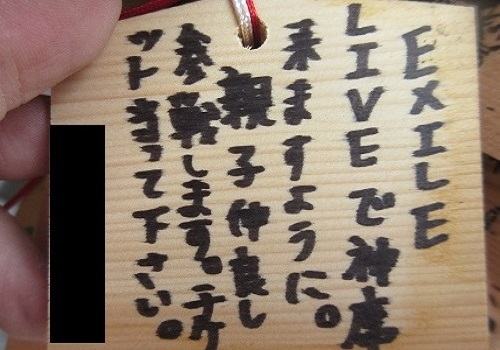 EXILE
LIVEで神席
来ますように。
親子仲良し
参戦します。チケ
ット当って下さい。